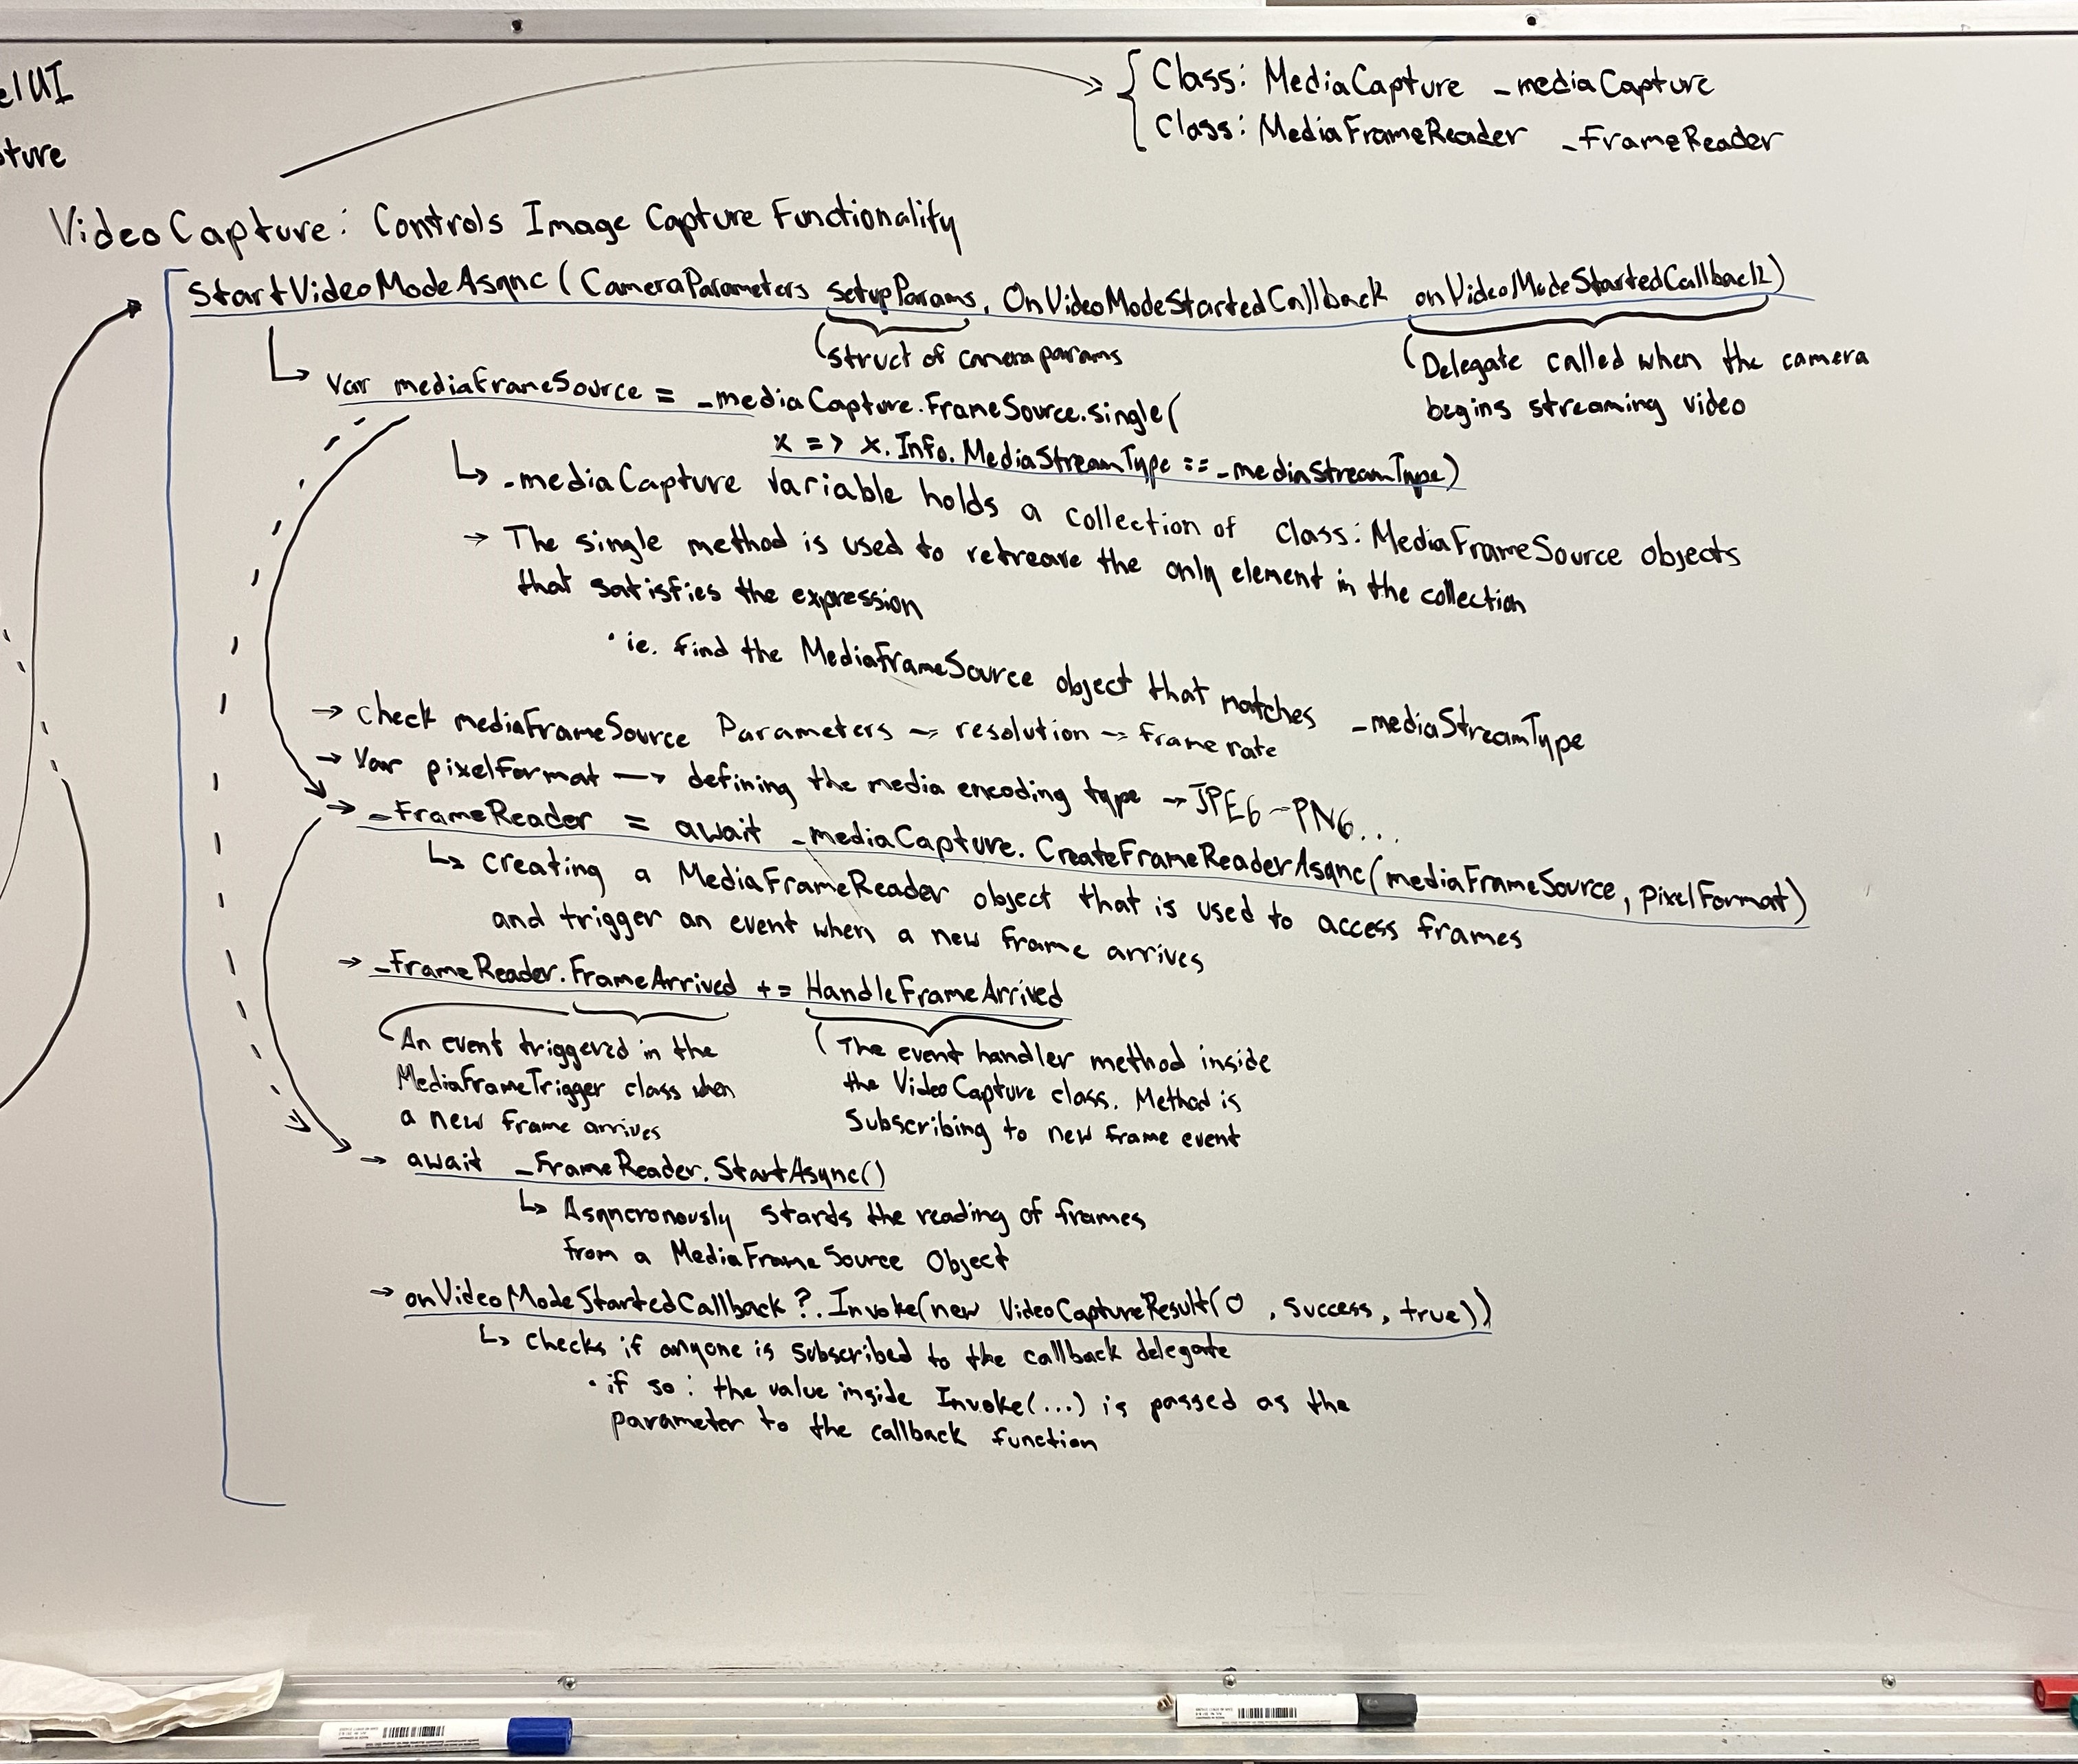 Class: MediaCapture _mediaCapture
Class: MediaFrameReader _FrameReader
VideoCapture: Controls Image Capture Functionality
StartVideoModeAsync(CameraParameters setupParams, OnVideoModeStartedCallback onVideoModeStartedCallback)
struct of camera params
Delegate called when the camera
begins streaming video
Var mediaFrameSource = _mediaCapture.FrameSource.single(
x => x.Info.MediaStreamType == _mediaStreamType)
↳ _mediaCapture variable holds a collection of Class: MediaFrameSource objects
→ The single method is used to retreave the only element in the collection
that satisfies the expression
• ie. find the MediaFrameSource object that matches _mediaStreamType
→ check mediaFrameSource Parameters → resolution → frame rate
→ Var pixelFormat → defining the media encoding type → JPEG → PNG...
→ _FrameReader = await _mediaCapture.CreateFrameReaderAsync(mediaFrameSource, pixelFormat)
↳ creating a MediaFrameReader object that is used to access frames
and trigger an event when a new frame arrives
→ _FrameReader.FrameArrived += HandleFrameArrived
An event triggered in the
MediaFrameTrigger class when
a new frame arrives
The event handler method inside
the VideoCapture class. Method is
Subscribing to new frame event
→ await _FrameReader.StartAsync()
↳ Asyncronously starts the reading of frames
from a MediaFrameSource Object
→ onVideoModeStartedCallback?.Invoke(new VideoCaptureResult(0, Success, true))
↳ checks if anyone is subscribed to the callback delegate
• if so: the value inside Invoke(...) is passed as the
parameter to the callback function